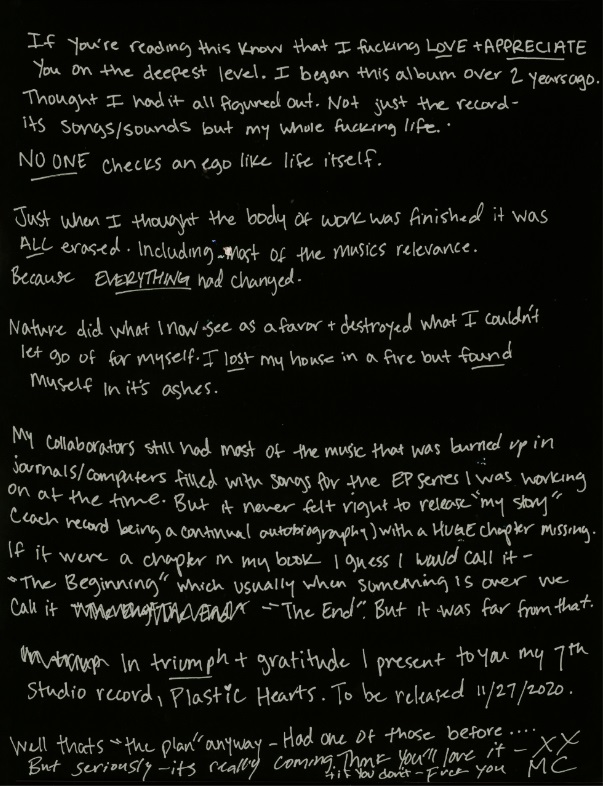 If you're reading this know that I fucking LOVE + APPRECIATE
You on the deepest level. I began this album over 2 years ago.
Thought I had it all figured out. Not just the record-
its songs/sounds but my whole fucking life.
NO ONE checks an ego like life itself.
Just when I thought the body of work was finished it was
ALL erased. Including most of the musics relevance.
Because EVERYTHING had changed.
Nature did what I now see as a favor + destroyed what I couldn't
let go of for myself. I lost my house in a fire but found
myself in it's ashes.
My collaborators still had most of the music that was burned up in
journals/computers filled with songs for the EP series I was working
on at the time. But it never felt right to release "my story"
(each record being a continual autobiography) with a HUGE chapter missing.
If it were a chapter in my book I guess I would call it -
"The Beginning" which usually when something is over we
call it - "The End". But it was far from that.
In triumph + gratitude I present to you my 7th
studio record, Plastic Hearts. To be released 11/27/2020.
Well thats "the plan" anyway - Had one of those before ....
But seriously - its really coming. Think you'll love it - XX
+ if you don't - Fuck you MC